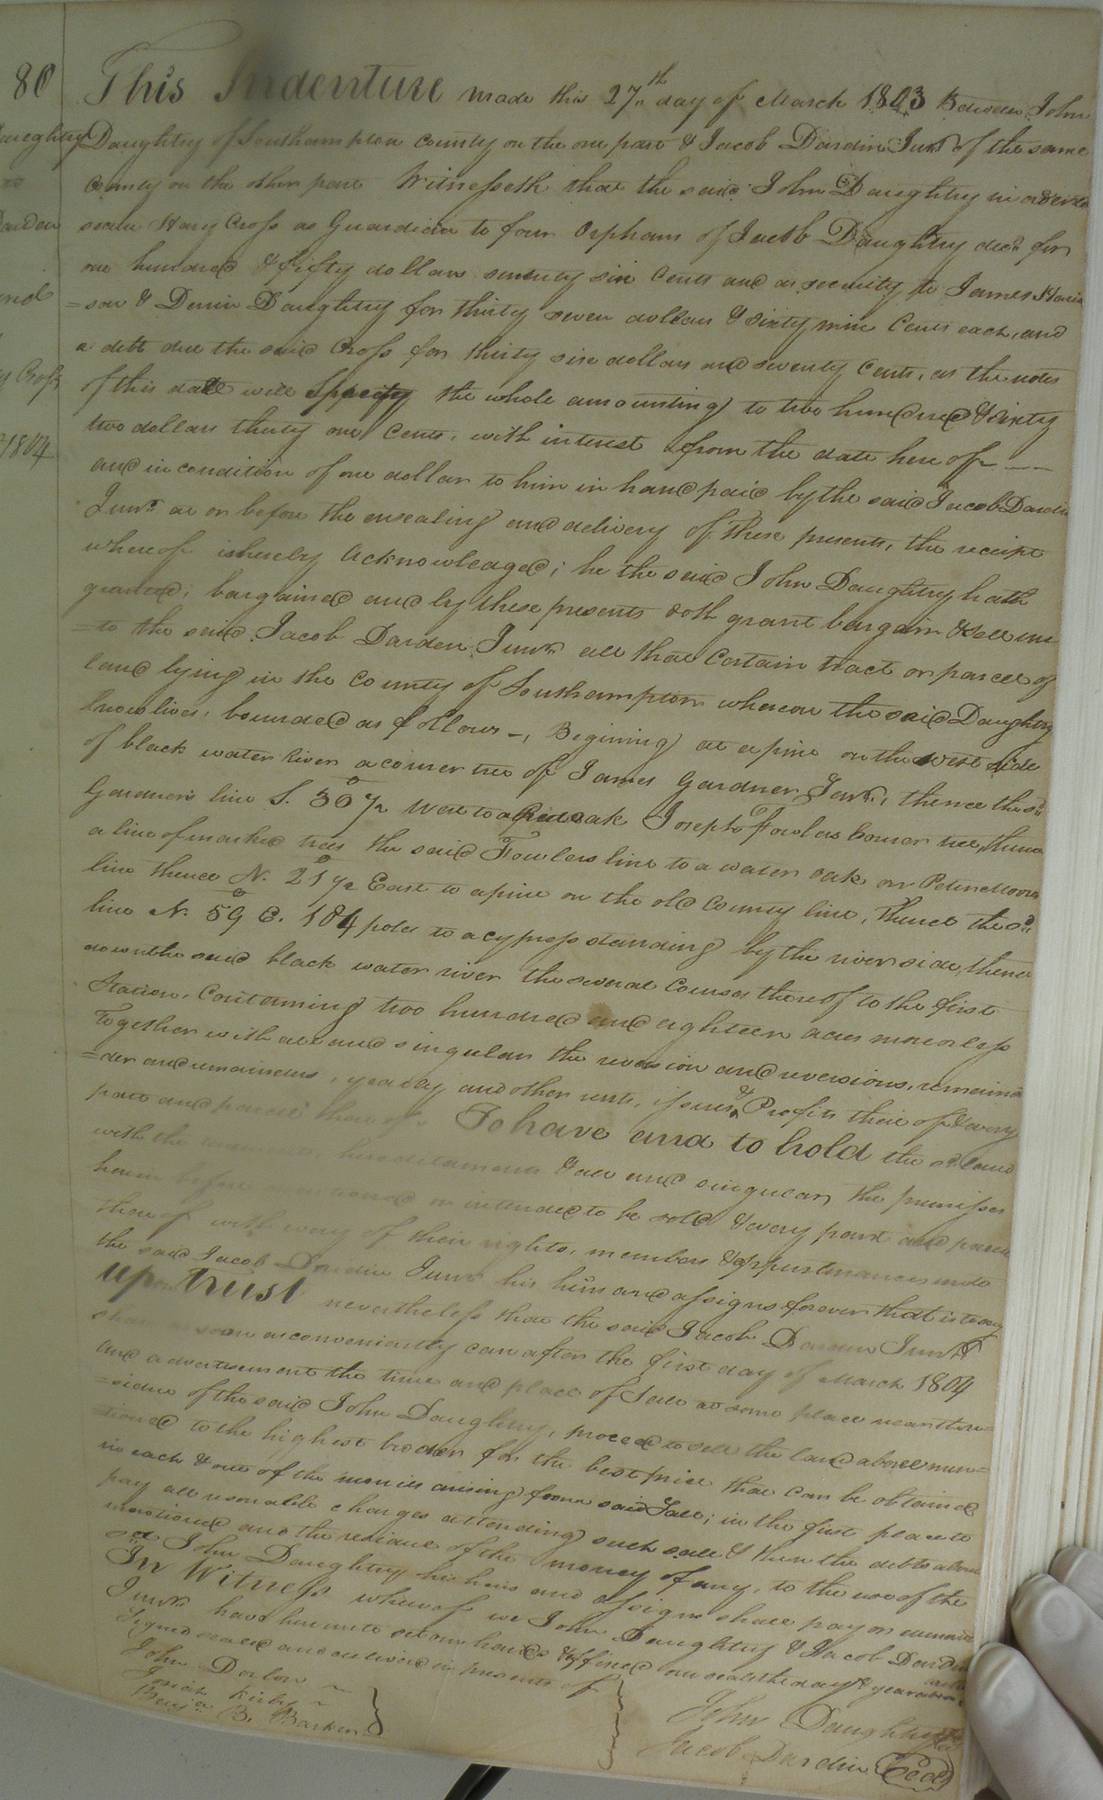 80
This Indenture made this 27th day of March 1803 Between John
Daughtry of Southampton County on the one part & Jacob Darden Junr of the same
County on the other part Witnesseth that the said John Daughtry in order to
secure Hary Cross as Guardian to four Orphans of Jacob Daughtry decd for
one hundred & fifty dollars seventy six Cents and as security to James Haris
=son & Demin Daughtry for thirty seven dollars & sixty nine Cents each, and
a debt due the said Cross for thirty six dollars and seventy Cents, as the notes
of this date will Specify the whole amounting to two hundred & sixty
two dollars thirty one Cents, with interest from the date here of
and in condition of one dollar to him in hand paid by the said Jacob Darden
Junr. at or before the ensealing and delivery of these presents, the receipt
whereof is hereby Acknowledged; he the said John Daughtry hath
granted, bargained and by these presents doth grant bargain & sell un
=to the said Jacob Darden Junr all that Certain tract or parcel of
land lying in the County of Southampton whereon the said Daughtry
now lives, bounded as follows, Begining at a pine on the West side
of black water river a corner tree of James Gardner Junr, thence the sd
Gardners line S. 30 1/2 West to a Red oak Joseph Fowlers Corner tree, thence
a line of marked trees the said Fowlers line to a water oak on Peter Moores
line thence N. 21 1/2 East to a pine on the old County line, thence the sd
line N. 59 E. 184 poles to a cypress standing by the river side, thence
down the said black water river the several Courses thereof to the first
Station, Containing two hundred and eighteen acres more or less
Together with all and singular the reversion and reversions, remain
=der and remainders, yearly and other rents, issues & Profits there of & every
part and parcel thereof. To have and to hold the sd land
with the hereditaments & all and singular, the premises
herein before mentioned or intended to be sold & every part and parcel
thereof with every of their rights, members & appurtenances unto
the said Jacob Darden Junr his heirs and assigns forever that is to say
upon trust nevertheless that the said Jacob Darden Junr
shall as soon as conveniently can after the first day of March 1804
and advertisement the time and place of Sale at some place near the re
=sidence of the said John Daughtry, proceed to sell the land above men=
tioned to the highest bidder for the best price that can be obtained
in each & out of the monies arising from said Sale; in the first place to
pay all reasonable charges attending such sale & then the debts above
mentioned and the residue of the money if any, to the use of the
sd John Daughtry his heirs and assigns shall pay
In Witness whereof we John Daughtry & Jacob Darden
Junr. have hereunto set our hands & affixed our seals the day & year above
Signed sealed and delivered in presents of
John
Kirby
Benja B. Barker
John Daughtry
Jacob Darden Seal
Daughtry
to
Darden
Cross
1804